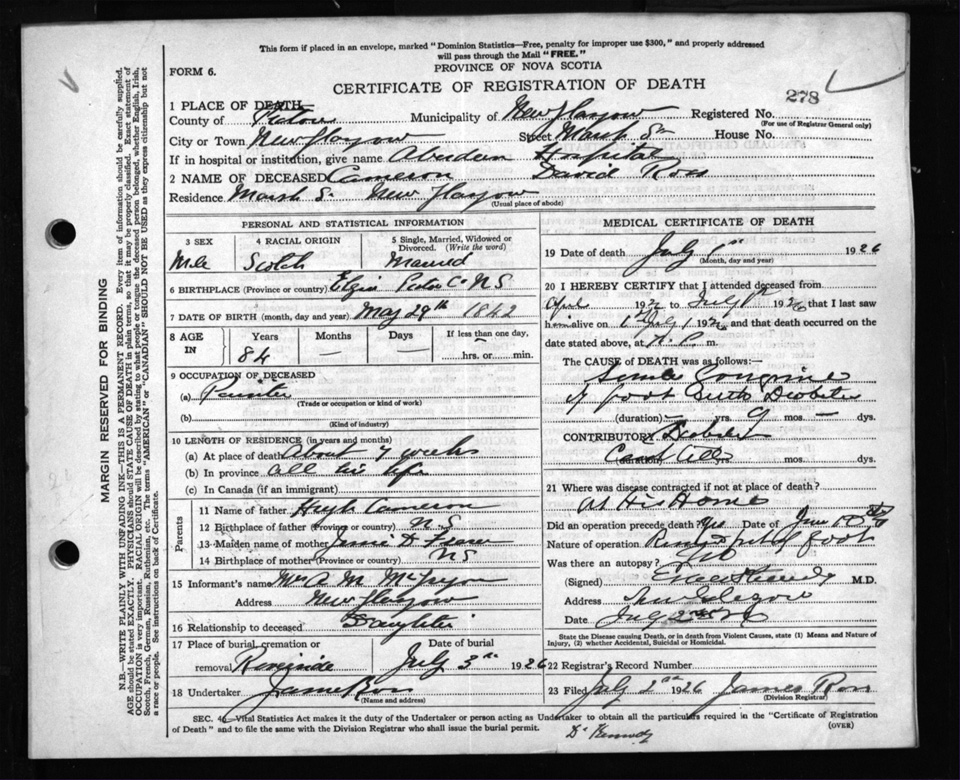 This form if placed in an envelope, marked "Dominion Statistics—Free, penalty for improper use $300," and properly addressed
will pass through the Mail "FREE."
PROVINCE OF NOVA SCOTIA
FORM 6.
CERTIFICATE OF REGISTRATION OF DEATH
278
1 PLACE OF DEATH
County of Pictou Municipality of New Glasgow Registered No.
(For use of Registrar General only)
City or Town New Glasgow Street Marsh St House No.
If in hospital or institution, give name Aberdeen Hospital
2 NAME OF DECEASED Cameron David Ross
Residence Marsh S. New Glasgow
(Usual place of abode)
PERSONAL AND STATISTICAL INFORMATION
3 SEX 4 RACIAL ORIGIN 5 Single, Married, Widowed or Divorced. (Write the word)
Male Scotch Married
6 BIRTHPLACE (Province or County) Elgin Pictou Co N S
7 DATE OF BIRTH (month, day and year) May 29th 1842
8 AGE IN Years Months Days If less than one day,
84 — — hrs. or min.
9 OCCUPATION OF DECEASED
(a) Painter
(Trade or occupation or kind of work)
(b)
(Kind of industry)
10 LENGTH OF RESIDENCE (in years and months)
(a) At place of death About 7 weeks
(b) In province all his life
(c) In Canada (if an immigrant)
Parents
11 Name of father Hugh Cameron
12 Birthplace of father (Province or country) N S
13 Maiden name of mother Jessie D Fraser
14 Birthplace of mother (Province or country) NS
15 Informant's name Mrs A M McGregor
Address New Glasgow
16 Relationship to deceased Daughter
17 Place of burial, cremation or removal Riverside
Date of burial July 3rd 1926
18 Undertaker James Ross
(Name and address)
MEDICAL CERTIFICATE OF DEATH
19 Date of death July 1st 1926
(Month, day and year)
20 I HEREBY CERTIFY that I attended deceased from
April 1926 to July 1st 1926 that I last saw
him alive on July 1 1926 and that death occurred on the
date stated above, at m.
The CAUSE of DEATH was as follows:—
Senile Gangrene
of foot with Diabetes
(duration) — yrs. mos. — dys.
CONTRIBUTORY Diabetes
(duration) yrs. mos. dys.
21 Where was disease contracted if not at place of death?
at His Home
Did an operation precede death? Yes Date of June 10
Nature of operation foot
Was there an autopsy? No
(Signed) Kennedy M.D.
Address New Glasgow
Date July 2nd
State the Disease causing Death, or in death from Violent Causes, state (1) Means and Nature of
Injury, (2) whether Accidental, Suicidal or Homicidal.
22 Registrar's Record Number
23 Filed July 2nd 1926 James Ross
(Division Registrar)
SEC. 4—Vital Statistics Act makes it the duty of the Undertaker or person acting as Undertaker to obtain all the particulars required in the "Certificate of Registration
of Death" and to file the same with the Division Registrar who shall issue the burial permit.
(OVER)
Dr Kennedy
MARGIN RESERVED FOR BINDING
N.B.—WRITE PLAINLY WITH UNFADING INK—THIS IS A PERMANENT RECORD. Every item of information should be carefully supplied.
AGE should be stated EXACTLY. PHYSICIANS should STATE CAUSE OF DEATH in plain terms, so that it may be properly classified. Exact statement of
OCCUPATION is very important. RACIAL ORIGIN will be described by stating to what people or tongue the deceased person belonged, whether English, Irish,
Scotch, French, German, Russian, Ruthenian, etc. The terms "AMERICAN" or "CANADIAN" SHOULD NOT BE USED as they express citizenship but not
a race or people. See instructions on back of Certificate.